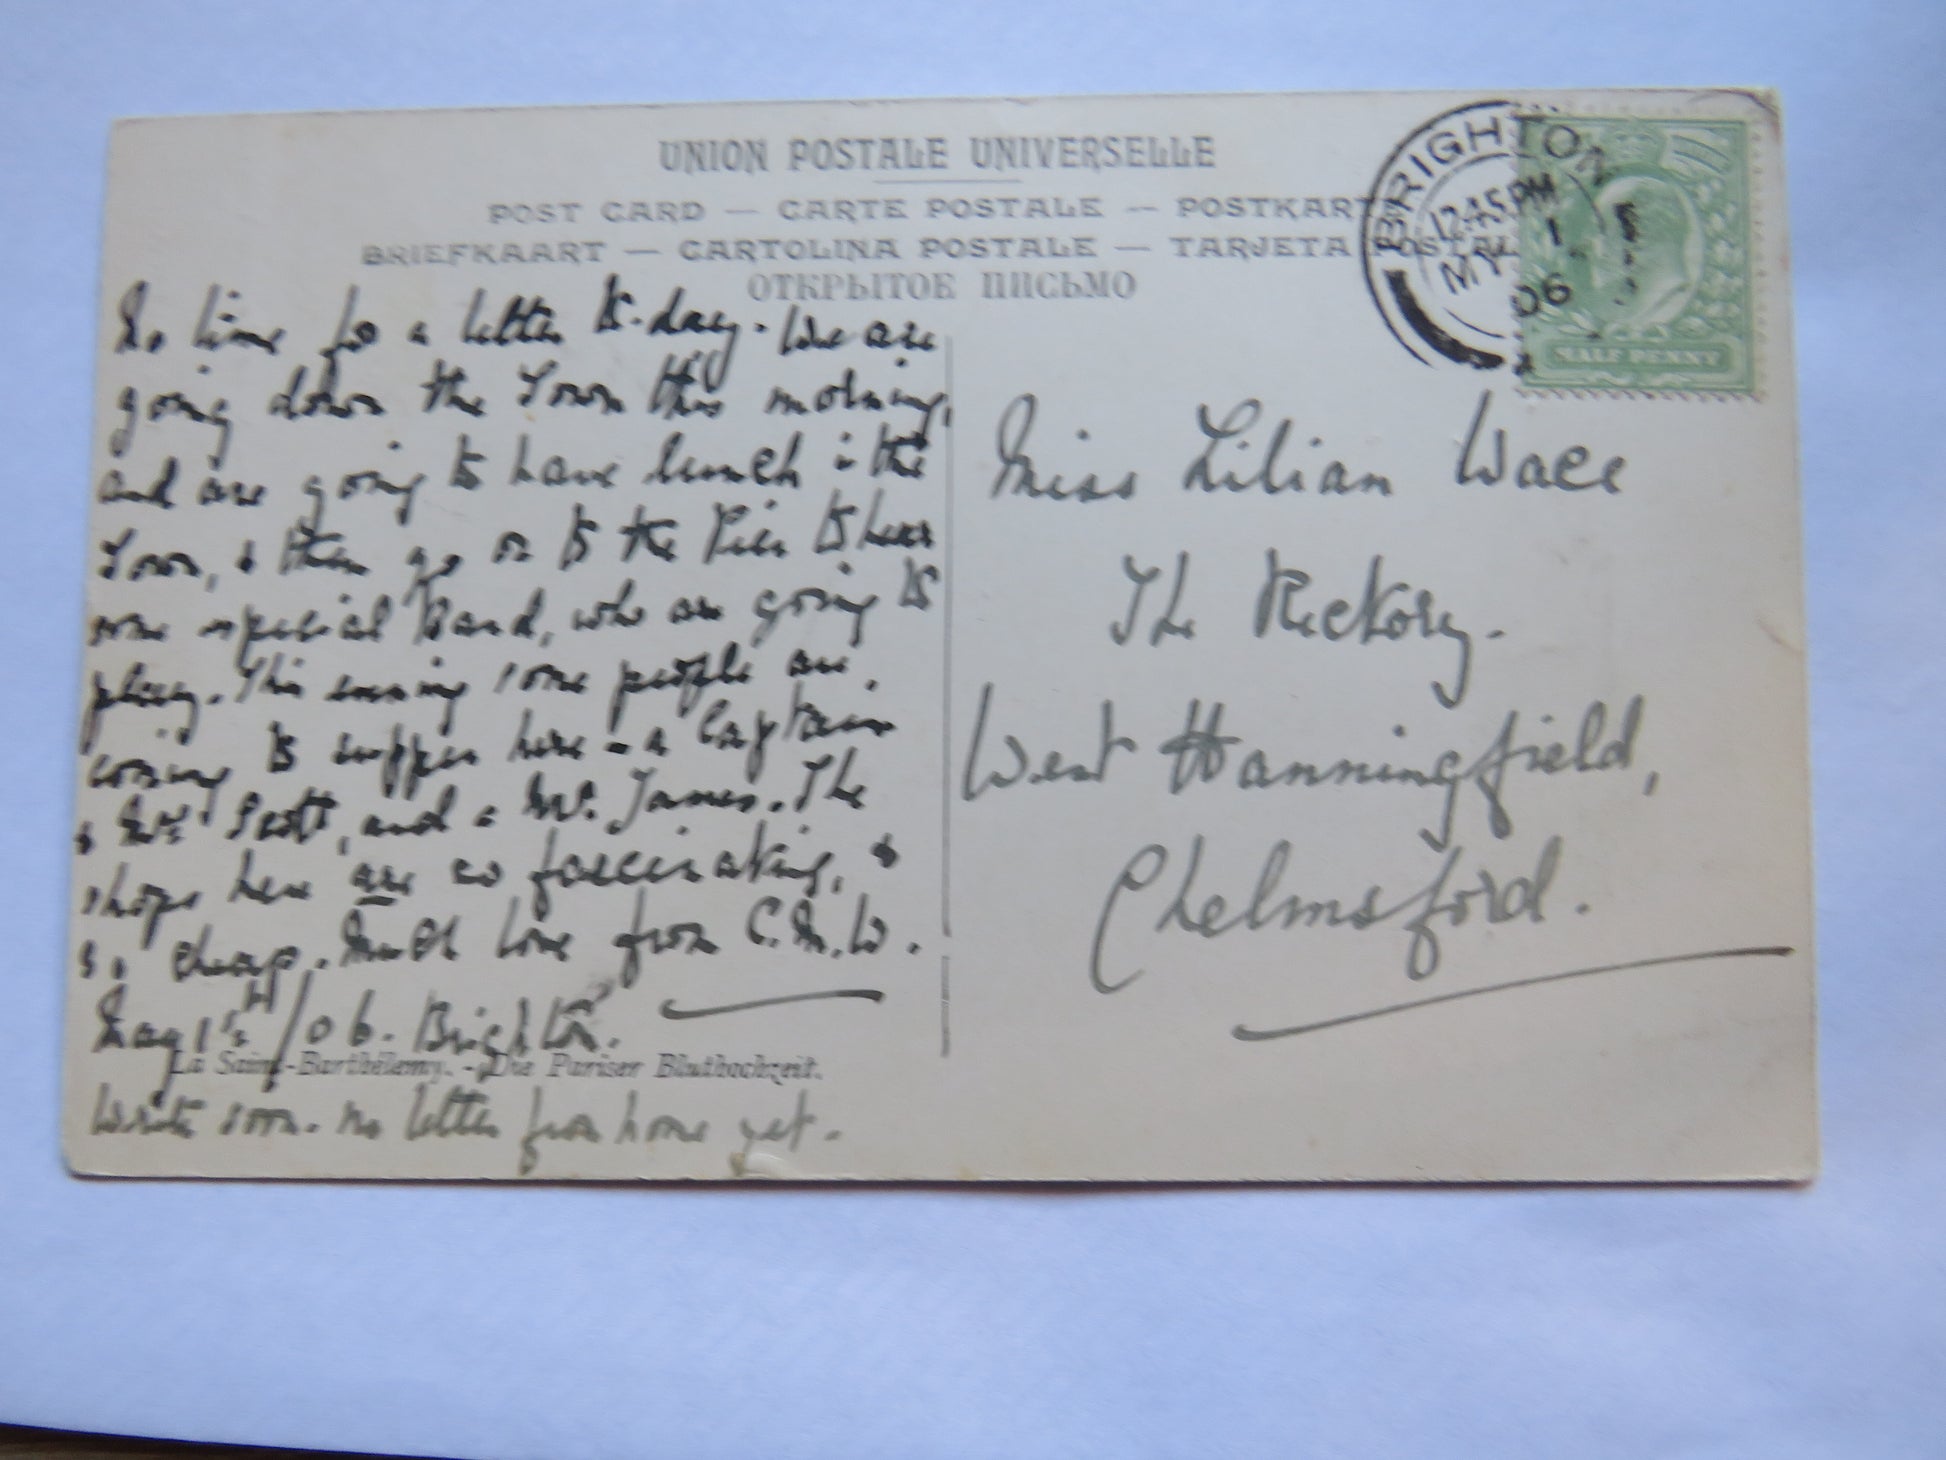 UNION POSTALE UNIVERSELLE
POST CARD — CARTE POSTALE — POSTKARTE
BRIEFKAART — CARTOLINA POSTALE — TARJETA POSTAL
ОТКРЫТОЕ ПИСЬМО
BRIGHTON
12.45 PM
MY 1
06
HALF PENNY
No time for a letter to-day. We are
going down the Town this morning,
and are going to have lunch in the
Town, & then go on to the Pier to hear
some special Band, who are going to
play. This evening some people are
coming to supper here - a Captain
& Mrs Scott, and a Mr. James. The
shops here are so fascinating, &
so cheap. Much love from C.M.W.
May 1st /06. Brighton.
La Saint-Barthélemy. - Die Pariser Bluthochzeit.
Write soon. no letter from home yet.
Miss Lilian Wace
The Rectory.
West Hanningfield,
Chelmsford.